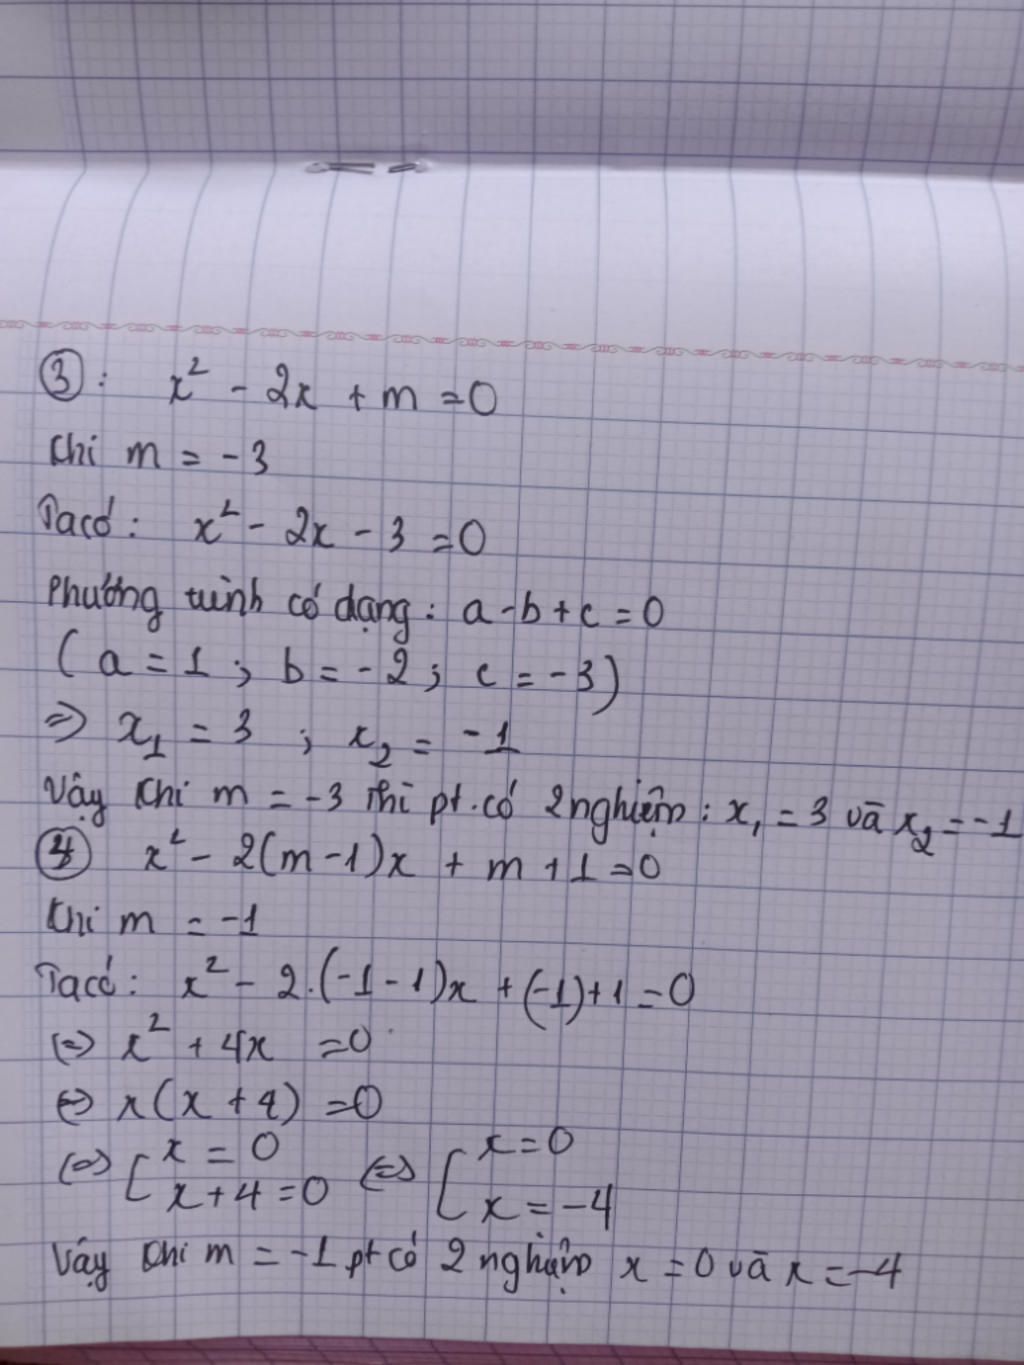 ③: x² - 2x + m = 0
Khi m = -3
Ta có: x² - 2x - 3 = 0
Phương trình có dạng: a - b + c = 0
(a = 1; b = -2; c = -3)
=> x₁ = 3 ; x₂ = -1
Vậy khi m = -3 thì pt có 2 nghiệm: x₁ = 3 và x₂ = -1
④ x² - 2(m-1)x + m + 1 = 0
Khi m = -1
Ta có: x² - 2.(-1-1)x + (-1)+1 = 0
<=> x² + 4x = 0
<=> x(x+4) = 0
<=> [ x = 0 <=> [ x = 0
x+4 = 0 x = -4
Vậy khi m = -1 pt có 2 nghiệm x = 0 và x = -4